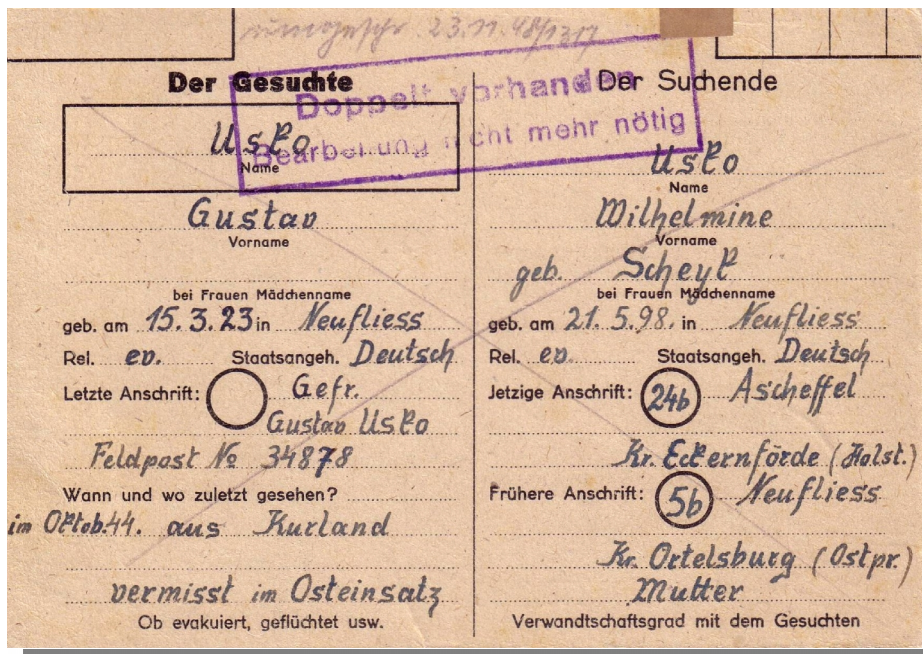 23.11.48/1317
Doppelt vorhanden
Bearbeitung nicht mehr nötig
Der Gesuchte
Usko
Name
Gustav
Vorname
bei Frauen Mädchenname
geb. am 15.3.23 in Neufliess
Rel. ev. Staatsangeh. Deutsch
Letzte Anschrift: Gefr.
Gustav Usko
Feldpost No 34878
Wann und wo zuletzt gesehen?
im Oktob.44. aus Kurland
vermisst im Osteinsatz
Ob evakuiert, geflüchtet usw.
Der Suchende
Usko
Name
Wilhelmine
Vorname
geb. Scheyk
bei Frauen Mädchenname
geb. am 21.5.98. in Neufliess
Rel. ev. Staatsangeh. Deutsch
Jetzige Anschrift: 24b Ascheffel
Kr. Eckernförde (Holst.)
Frühere Anschrift: 5b Neufliess
Kr. Ortelsburg (Ostpr.)
Mutter
Verwandtschaftsgrad mit dem Gesuchten